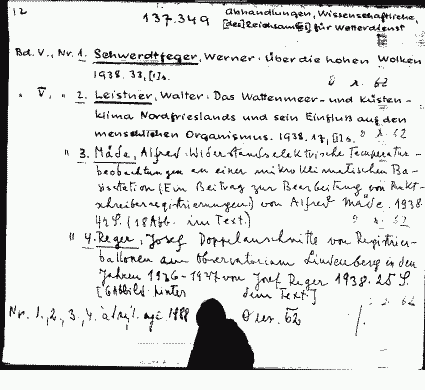 12
137.349
Abhandlungen, Wissenschaftliche,
[des] Reichsamt[s] für Wetterdienst
Bd. V., Nr. 1. Schwerdtfeger, Werner. Über die hohen Wolken
1938. 33, [1] S.
" V, " 2. Leistner, Walter. Das Wattenmeer- und Küsten-
klima Nordfrieslands und sein Einfluß auf den
menschlichen Organismus. 1938. 17, [1] S.
" 3. Mäde, Alfred. Widerstandselektrische Temperatur-
beobachtungen an einer mikroklimatischen Ba-
sisstation (Ein Beitrag zur Bearbeitung von Punkt-
schreiberregistrierungen) von Alfred Mäde. 1938
42 S. (18 Abb. im Text.)
" 4. Reger, Josef Doppelanschnitte von Registrier-
ballonen am Observatorium Lindenberg in den
Jahren 1926-1937 von Josef Reger 1938. 25 S.
[6 Abbild. hinter dem Text.]
Nr. 1., 2., 3., 4. 62